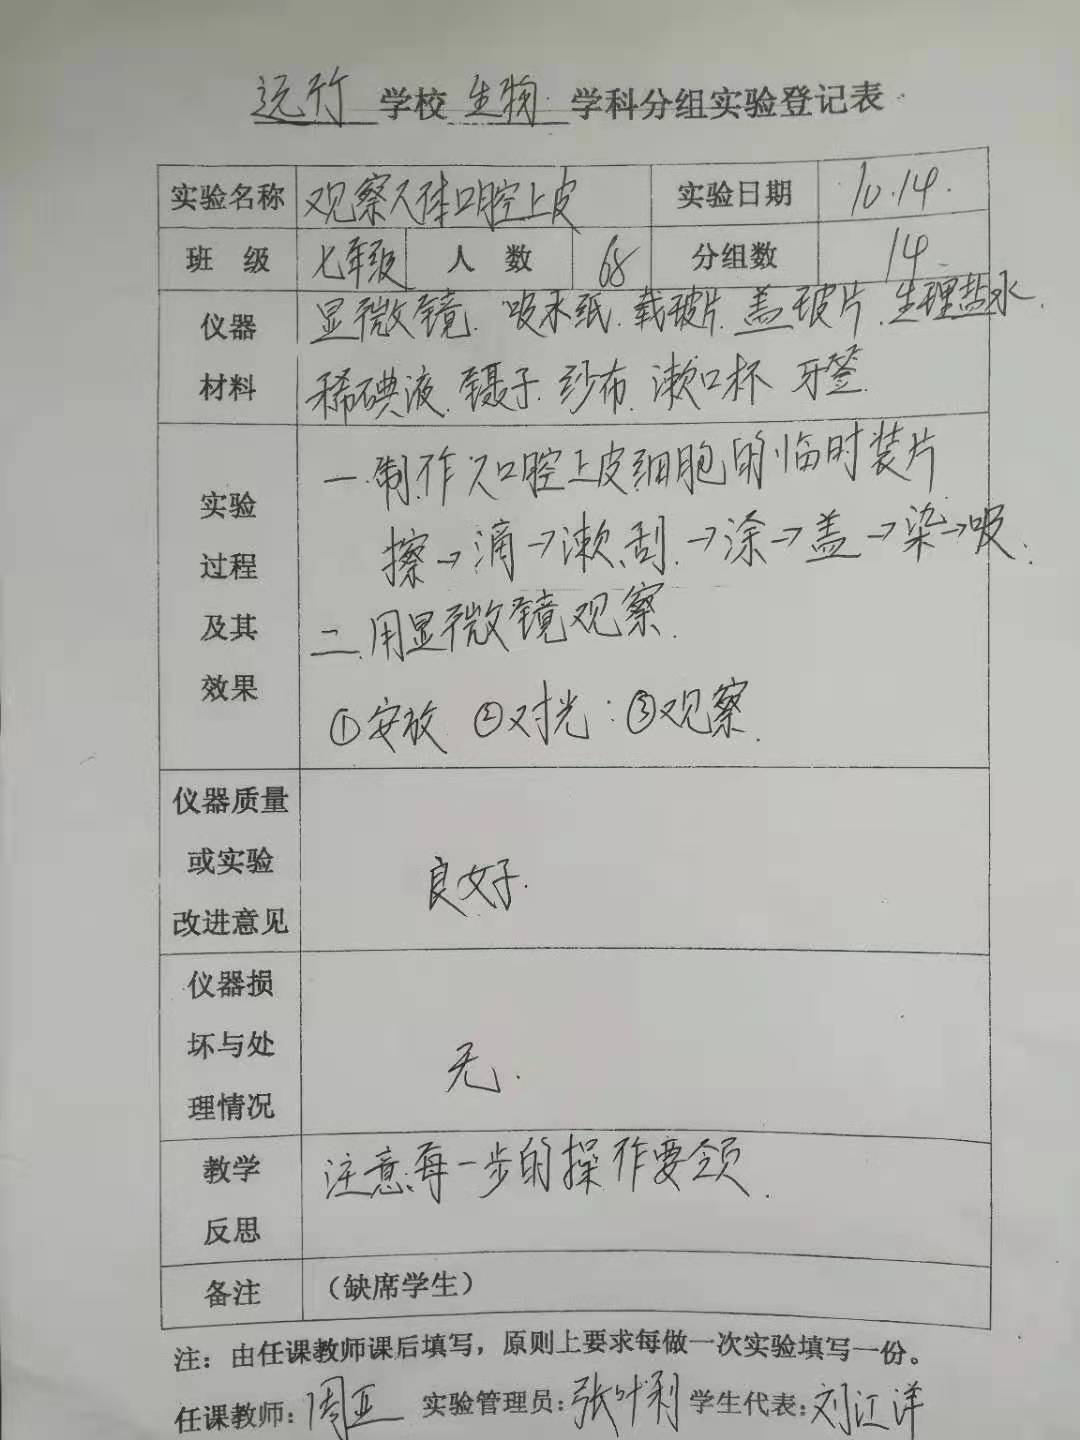 远竹学校 生物 学科分组实验登记表
实验名称 观察人体口腔上皮 实验日期 10.14.
班 级 七年级 人 数 68 分组数 14.
仪器 显微镜. 吸水纸. 载玻片. 盖玻片. 生理盐水.
材料 稀碘液. 镊子. 纱布. 漱口杯 牙签.
一.制作人口腔上皮细胞的临时装片
实验
擦→滴→漱.刮.→涂→盖→染→吸.
过程
及其 二.用显微镜观察.
效果
①安放 ②对光: ③观察.
仪器质量
或实验 良好.
改进意见
仪器损
坏与处 无.
理情况
教学 注意每一步的操作要领.
反思
备注 (缺席学生)
注: 由任课教师课后填写，原则上要求每做一次实验填写一份。
任课教师: 周亚 实验管理员: 张叶利 学生代表: 刘江洋